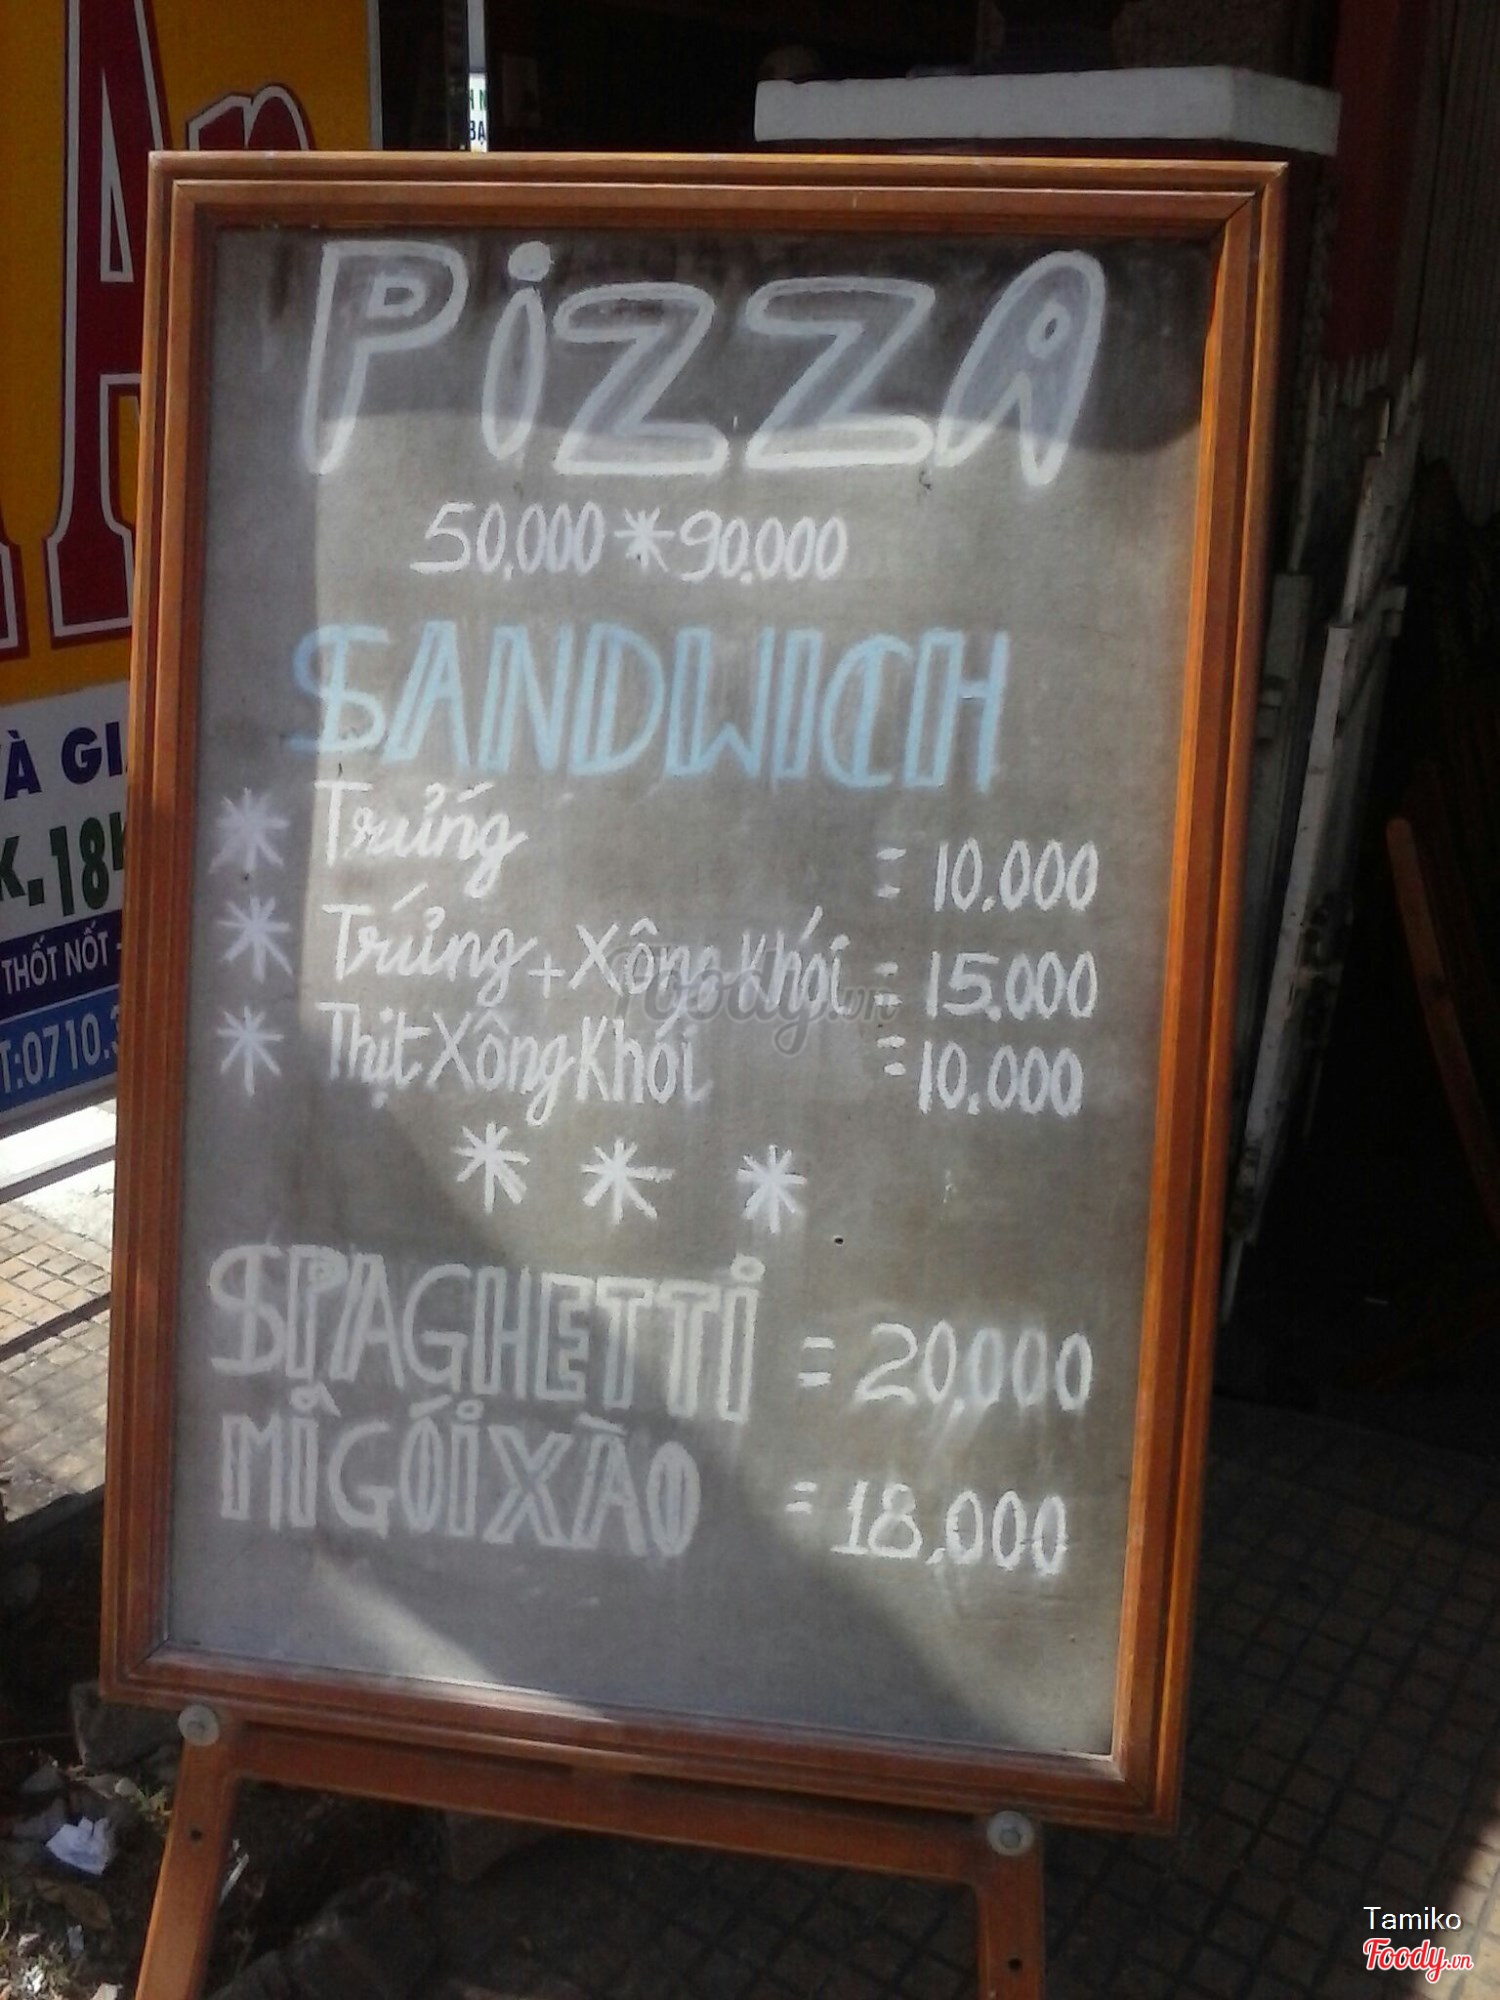 PiZZA
50.000 * 90.000
SANDWICH
* Trứng = 10.000
* Trứng + Xông Khói = 15.000
* Thịt Xông Khói = 10.000
* * *
SPAGHETTi = 20,000
MÌ GÓI XÀO = 18,000
An
VÀ GI
K. 18K
THỐT NỐT -
T:0710.3
BA
Foody.vn
Tamiko
Foody.vn